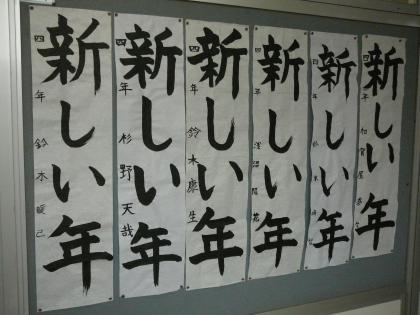 新しい年
四年 鈴木暖己
新しい年
四年 杉野天哉
新しい年
四年 鈴木康生
新しい年
四年
新しい年
四年
新しい年
四年 加賀屋